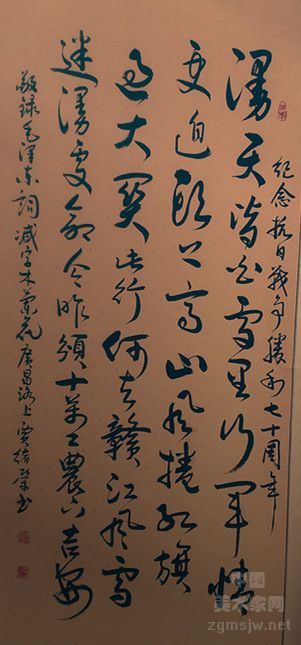 纪念抗日战争胜利七十周年
漫天皆白雪里行军情
更迫头上高山风捲红旗
过大关此行何去赣江风雪
迷漫处命令昨颁十萬工農下吉安
敬録毛泽东词减字木蘭花广昌路上 书
美术家网
zgmsjw.net